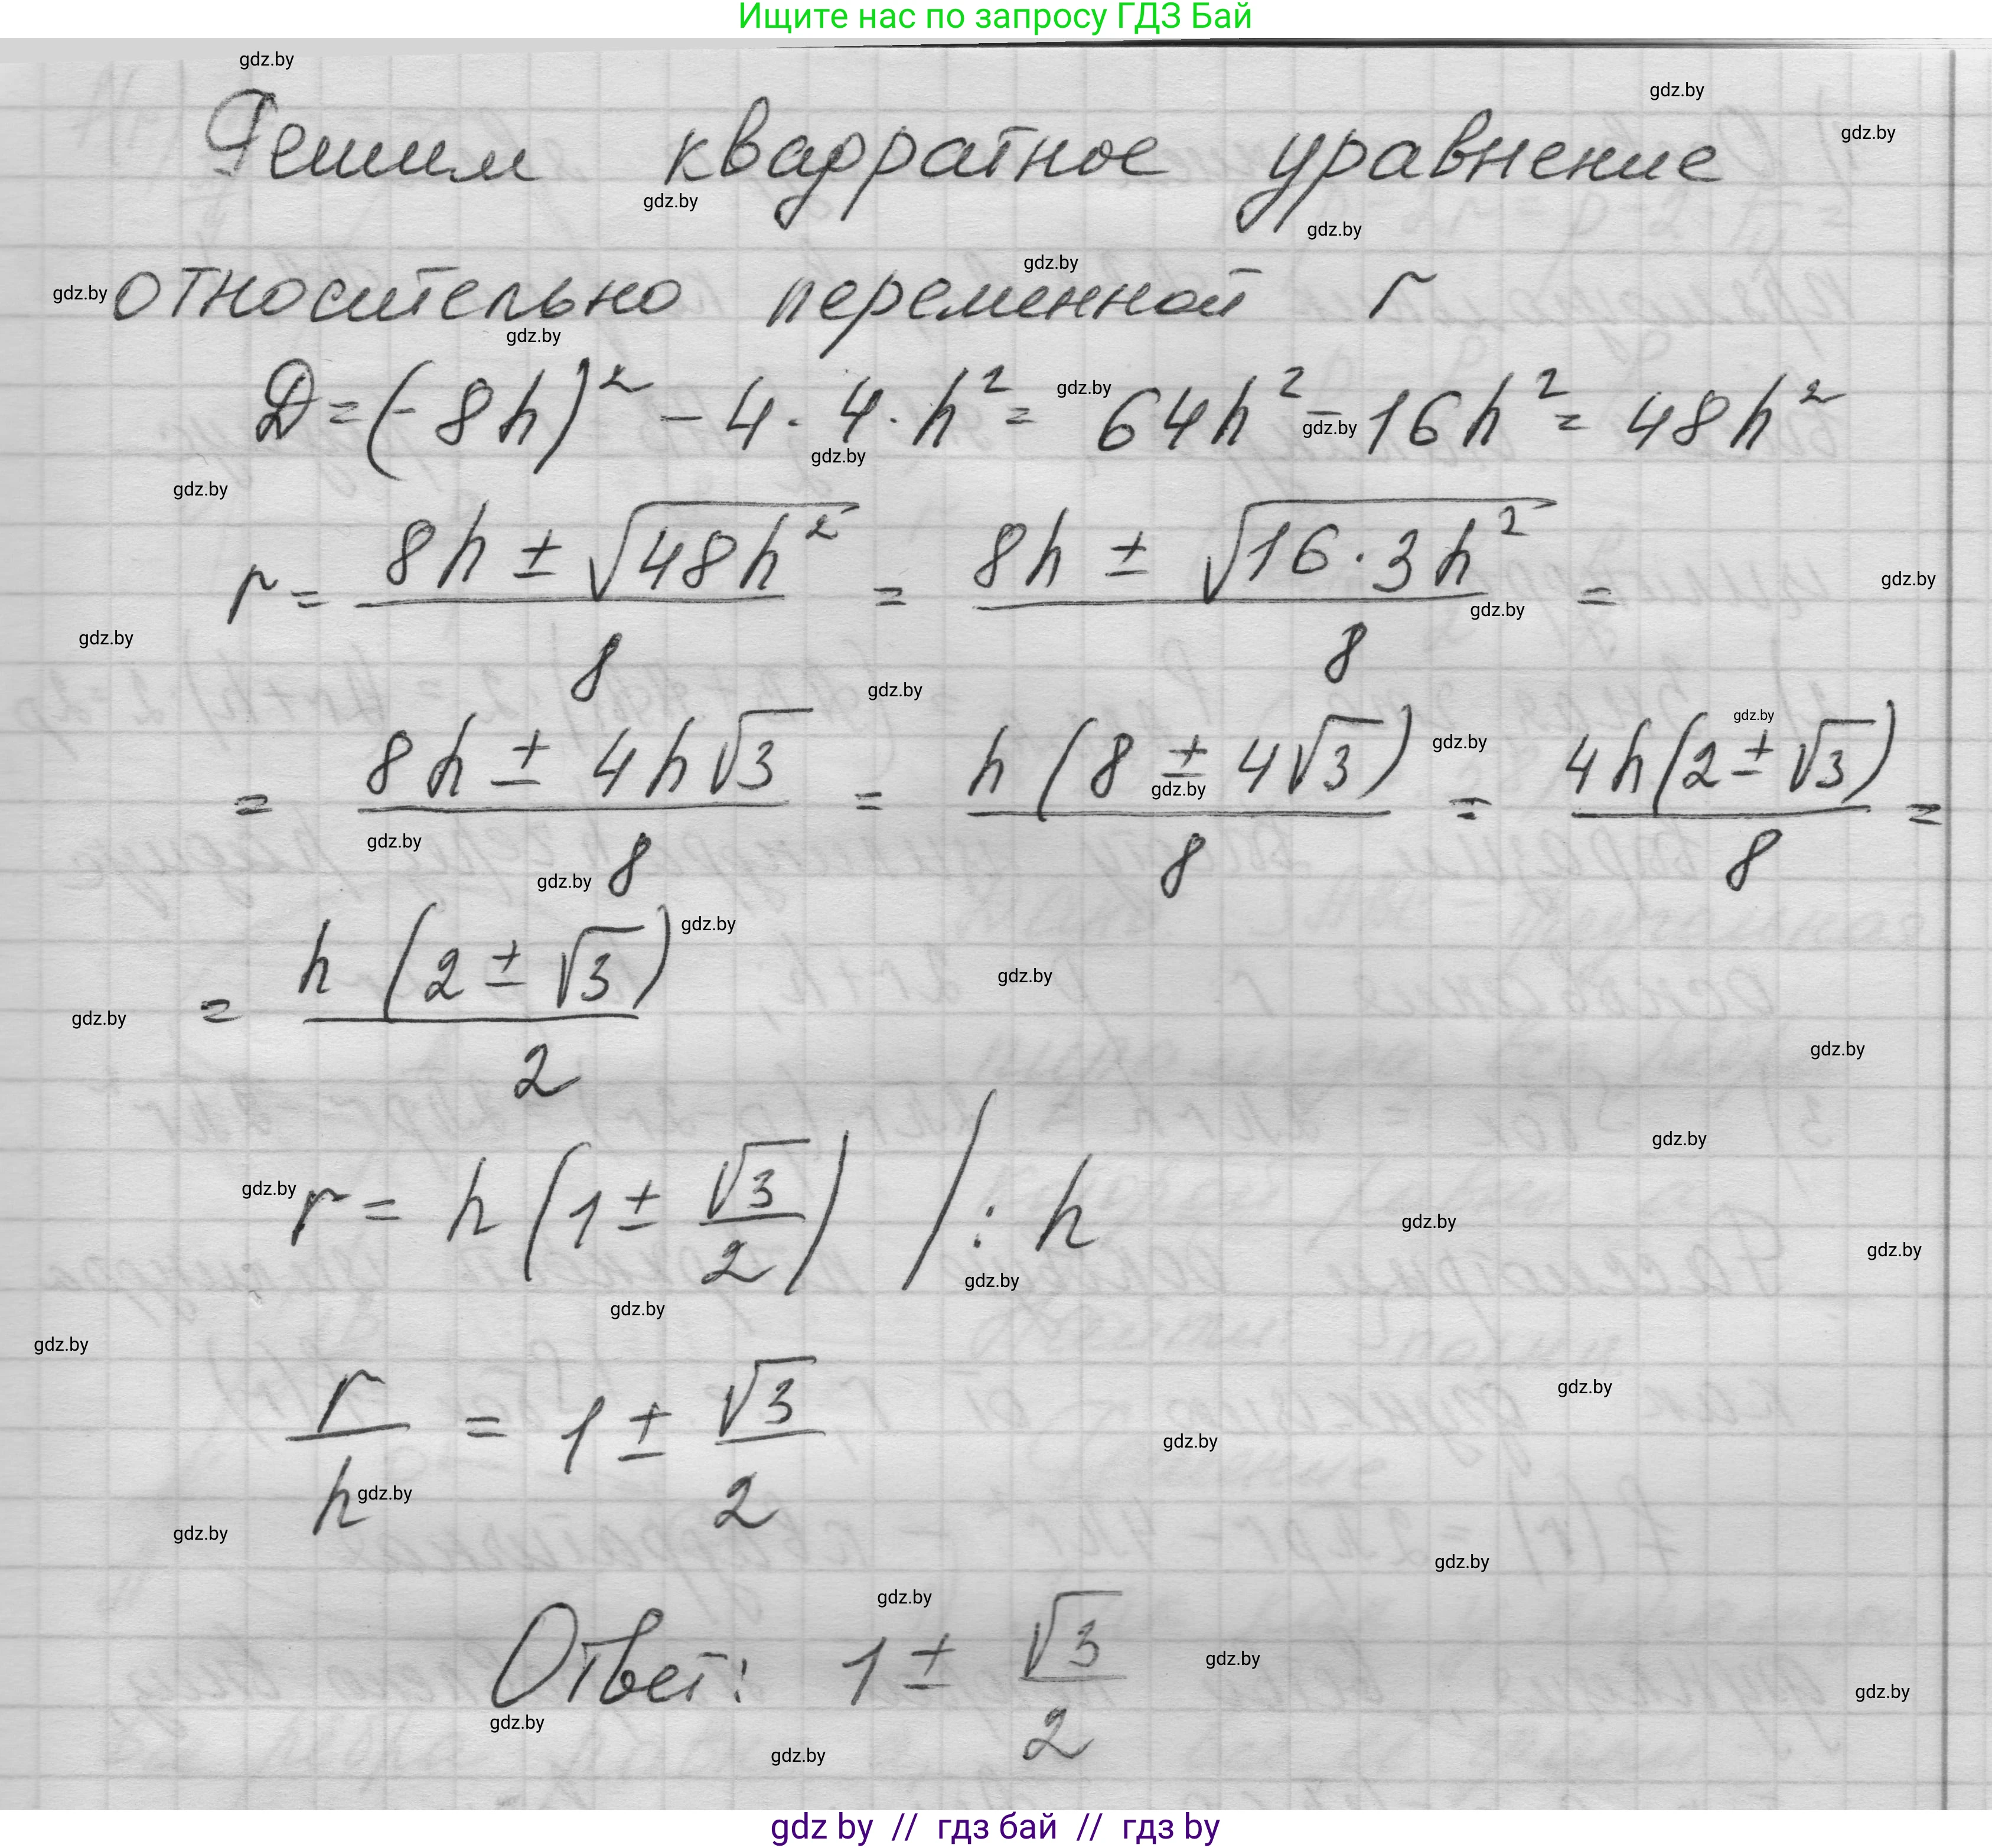 Ищите нас по запросу ГДЗ Бай
Решим квадратное уравнение
относительно переменной r
D = (-8h)² - 4 · 4 · h² = 64h² - 16h² = 48h²
r = (8h ± √(48h²))/8 = (8h ± √(16 · 3h²))/8 =
= (8h ± 4h√3)/8 = h(8 ± 4√3)/8 = 4h(2 ± √3)/8 =
= h(2 ± √3)/2
r = h(1 ± √3/2) / : h
r/h = 1 ± √3/2
Ответ: 1 ± √3/2
gdz by // гдз бай // гдз by